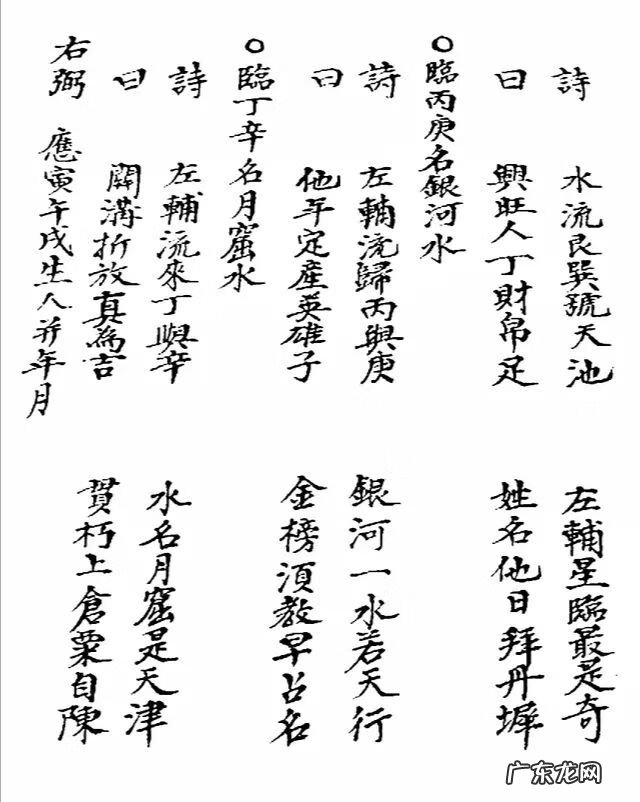 詩 水流艮巽號天池 左輔星臨最是奇
曰 興旺人丁財帛足 姓名他日拜丹墀
○臨丙庚名銀河水
詩 左輔流歸丙與庚 銀河一水若天行
曰 他年定產英雄子 金榜須教早占名
○臨丁辛名月窟水
詩 左輔流來丁與辛 水名月窟是天津
曰 開溝折放真為吉 貫朽上倉粟自陳
右弼 應寅午戌生人并年月
广东龙网